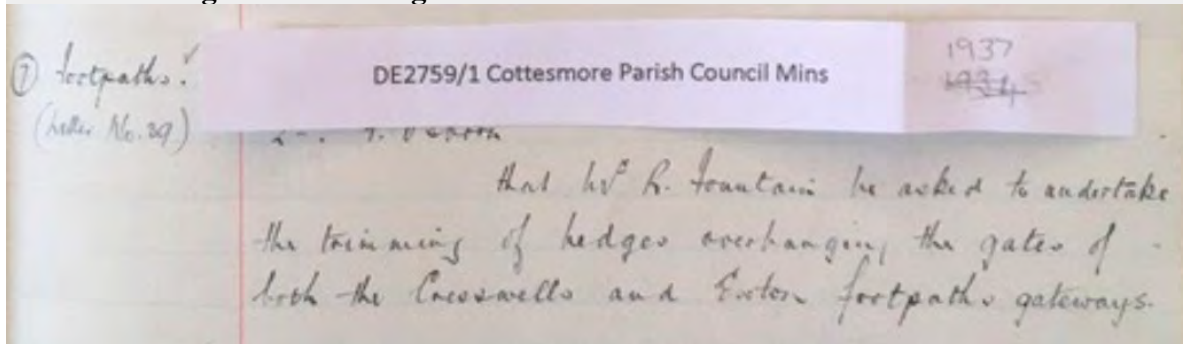 ⑦ footpaths.
DE2759/1 Cottesmore Parish Council Mins
1937
1934
(Letter No. 39)
that Mr R. Fountain be asked to undertake
the trimming of hedges overhanging the gates of
both the Cresswells and Exton footpaths gateways.